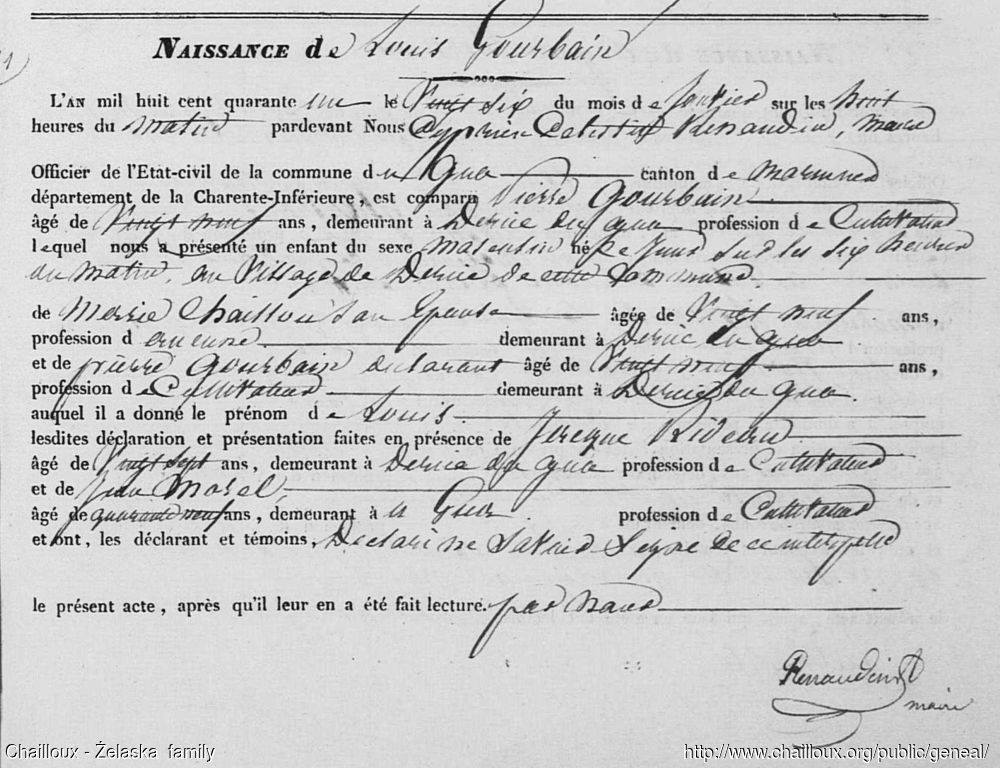 NAISSANCE de Louis Gourbain
L'AN mil huit cent quarante un le Vingt six du mois de Janvier sur les huit
heures du matin pardevant Nous Cyprien Celestin Renaudin, maire
Officier de l'Etat-civil de la commune du Gua canton de marennes
département de la Charente-Inférieure, est comparu Pierre Gourbain
âgé de Vingt neuf ans, demeurant à Dercie du gua profession de Cultivateur
lequel nous a présenté un enfant du sexe masculin né Ce Jour sur les six heures
du matin, au Village de Dercie de cette Commune
de Marie Chailloux Son Epouse âgée de Vingt neuf ans,
profession d demeurant à Dercie du gua
et de pierre Gourbain declarant âgé de Vingt neuf ans,
profession de Cultivateur demeurant à Dercie du gua.
auquel il a donné le prénom de Louis
lesdites déclaration et présentation faites en présence de
âgé de Vingt sept ans, demeurant à Dercie du gua profession de Cultivateur
et de Jean Morel,
âgé de quarante neuf ans, demeurant à u Gua profession de Cultivateur
et ont, les déclarant et témoins, Declaré ne Savoir Signe de ce interpellé
le présent acte, après qu'il leur en a été fait lecture. par nous
Renaudin
maire
Chailloux - Żelaska family
http://www.chailloux.org/public/geneal/